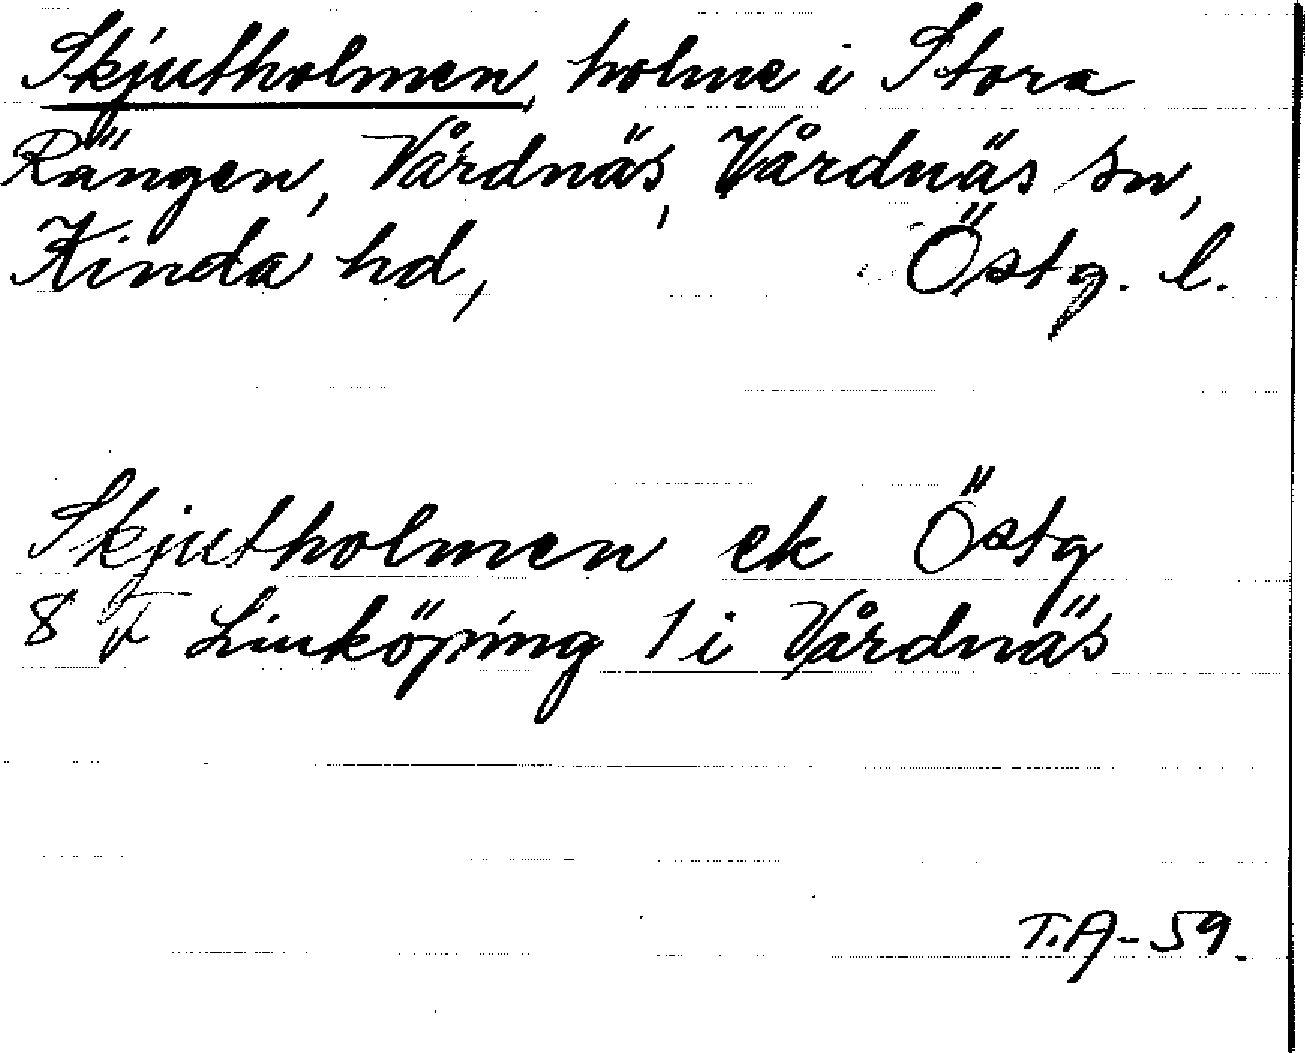 Skjutholmen, holme i Stora
Rängen, Vårdnäs, Vårdnäs sn,
Kinda hd, Östg. l.
Skjutholmen ek Östg
8 F Linköping 1 i Vårdnäs
T.A-59.